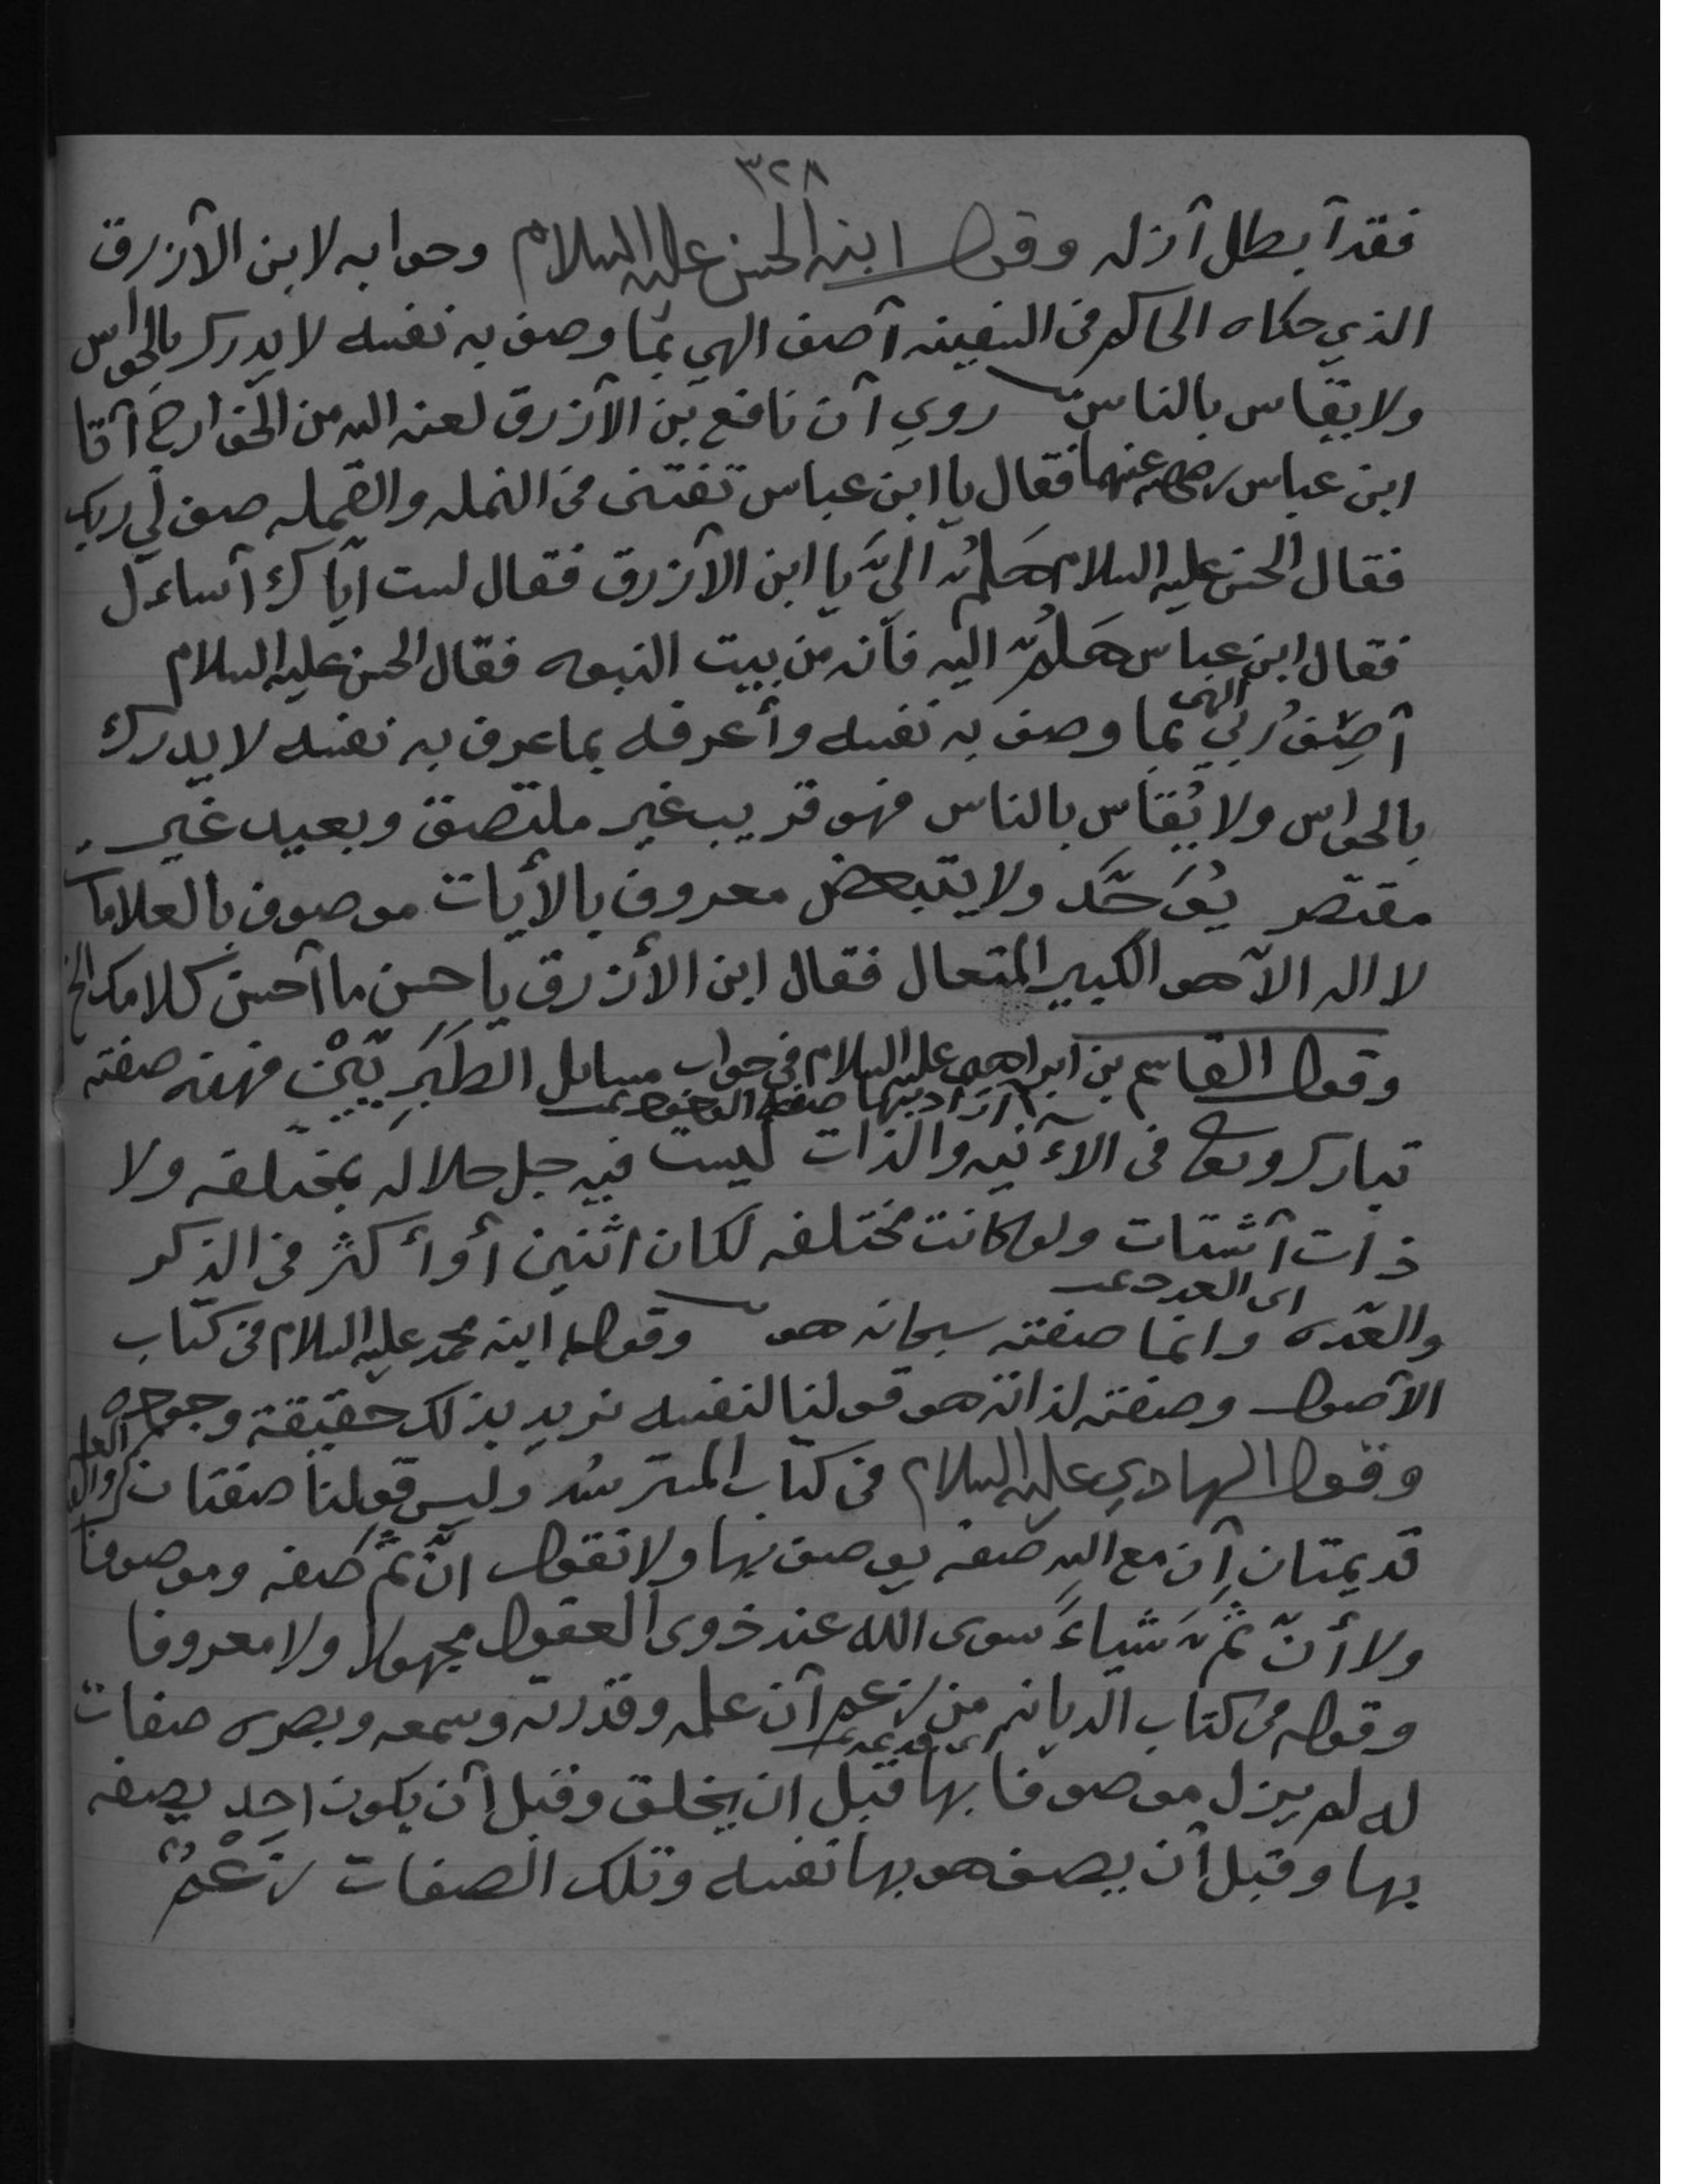 ٣٢٨
فقد أبطل أزله وقول ابنه الحسن عليه السلام وجوابه لابن الأزرق
الذي حكاه الحاكم في السفينه أصف الهي بما وصف به نفسه لا يدرك بالحواس
ولا يقاس بالناس روي أن نافع بن الأزرق لعنه الله من الخوارج أتا
ابن عباس رضي الله عنهما فقال يا ابن عباس تفتني في النمله والقمله صف لي ربك
فقال الحسن عليه السلام هَلُمّ اليَّ يا ابن الأزرق فقال لست ايّاك أساءل
فقال ابن عباس هَلُمّ اليه فأنه من بيت النبوه فقال الحسن عليه السلام
الهي
أصِفُ ربي بما وصف به نفسه وأعرفه بما عرف به نفسه لا يدرك
بالحواس ولا يُقاس بالناس فهو قريب غير ملتصق وبعيد غير
مقتصر يُوَحَّد ولا يتبعض معروف بالأيات موصوف بالعلامات
لا اله الا هو الكبير المتعال فقال ابن الأزرق يا حسن ما أحسن كلامك الخ
وقول القاسم بن ابراهيم عليه السلام في جواب مسايل الطَبَريّيْن فهذه صفته
أراد بها صفة الوجود تمت
تبارك وتعالى في الاءنيه والذات ليست فيه جل جلاله بمختلفه ولا
ذات أشتات ولو كانت مختلفه لكان اثنين أو أكثر في الذكر
اى العدد تمت
والعدّه وانما صفته سبحانه هو وقول ابنه محمد عليه السلام في كتاب
الأصول وصفته لذاته هو قولنا لنفسه نريد بذلك حقيقة وجوده
وقول الهادي عليه السلام في كتاب المسترشد وليس قولنا صفتان العلم والقدره
قديمتان أن مع الله صفه يوصف بها ولا نقول انّ ثَمّ صفه وموصوفا
ولا أنّ ثَمّ شياءً سوى الله عند ذوى العقول مجهولا ولا معروفا
وقوله في كتاب الديانه من زعم أن علمه وقدرته وسمعه وبصره صفات
اى قديمه تمت
له لم يزل موصوفا بها قبل ان يخلق وقبل أن يكون احد يصفه
بها وقبل أن يصف هو بها نفسه وتلك الصفات زَعْمٌ